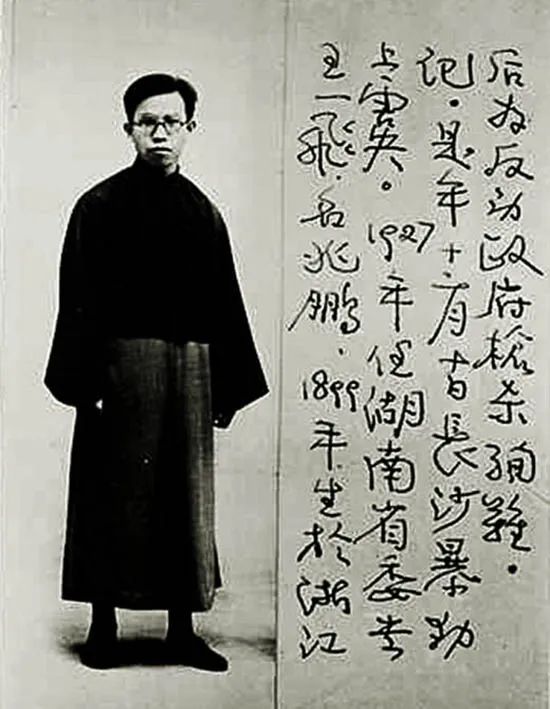 王一飛，名兆鵬，1899年生於浙江
上虞。1927年任湖南省委书
记。是年十二月十日長沙暴动
后为反动政府槍杀殉難。